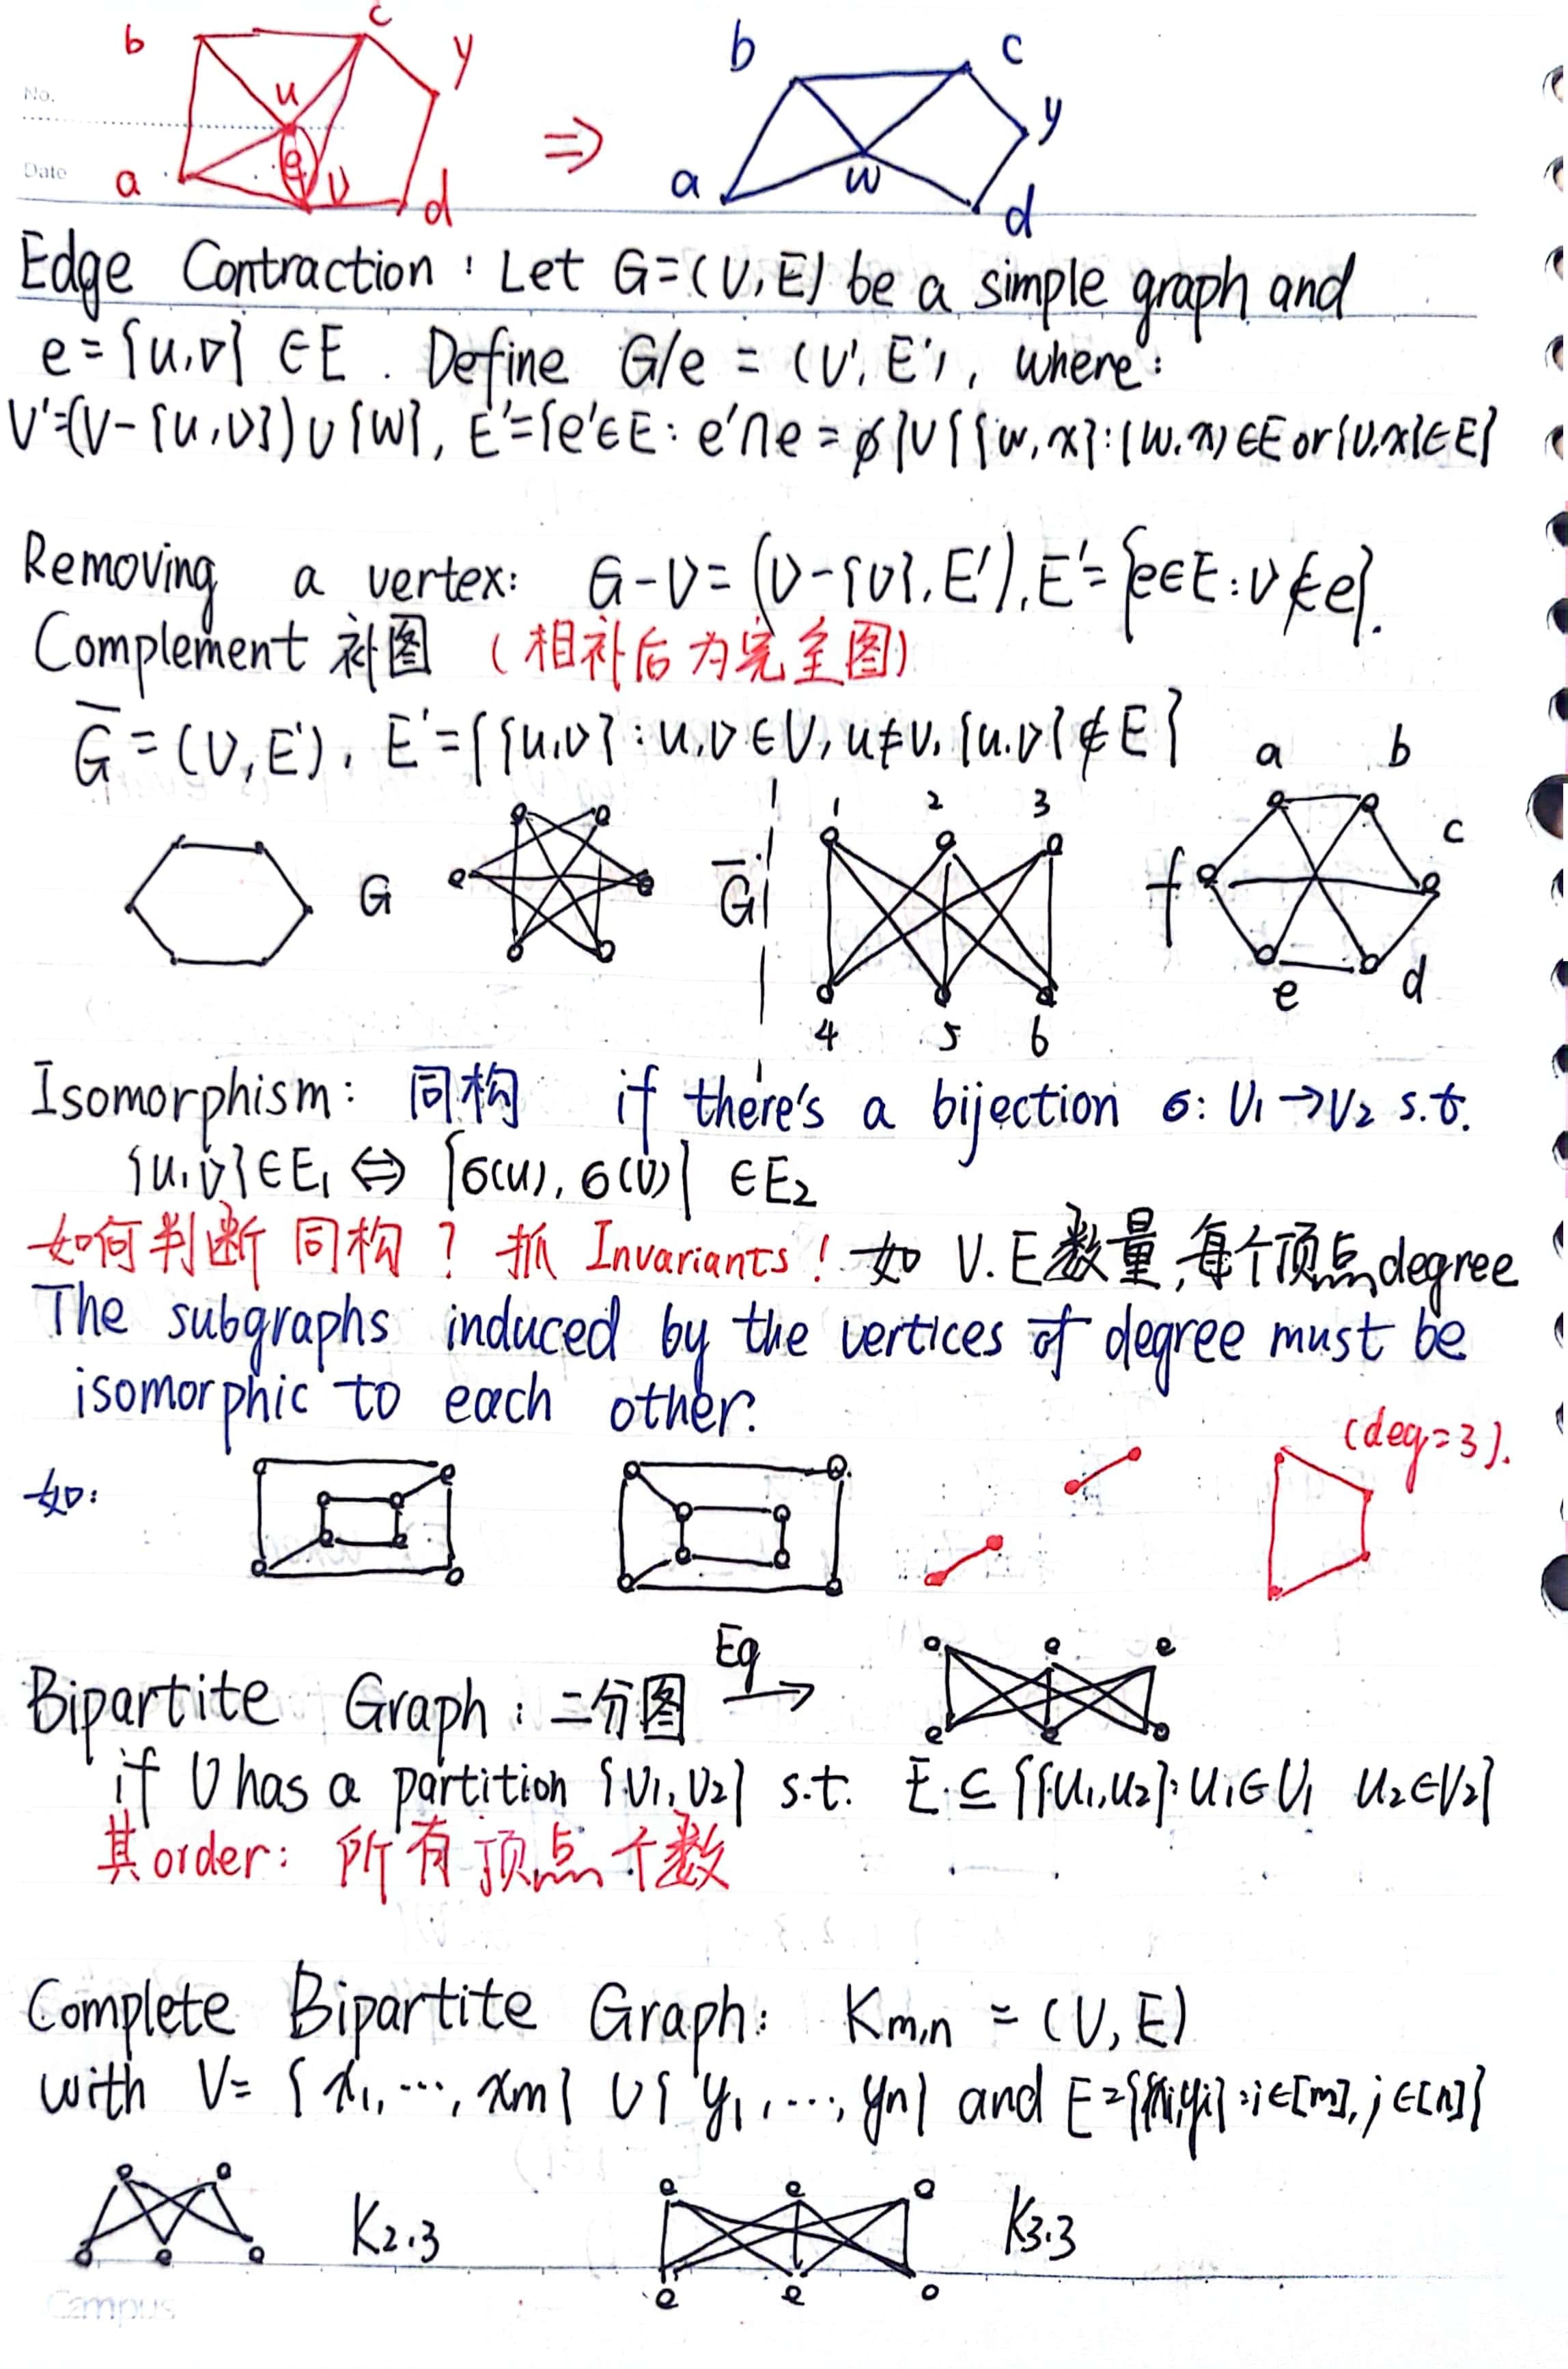 b c y
u
e
a v d
⇒
b c y
a w d
No.
Date
Edge Contraction : Let G=(V,E) be a simple graph and
e={u,v} ∈E . Define G/e = (V', E'), where:
V'=(V-{u,v})∪{w}, E'={e'∈E: e'∩e=ϕ}∪{{w,x}:{w,x}∈E or{v,x}∈E}
Removing a vertex: G-v=(V-{v},E'),E'={e∈E:v∉e}.
Complement 补图 (相补后为完全图)
G̅=(V,E'), E'={{u,v}:u,v∈V,u≠v,{u,v}∉E}
a b
1 2 3
G G̅
f c
4 5 6
e d
Isomorphism: 同构 if there's a bijection σ: V₁→V₂ s.t.
{u,v}∈E₁ ⇔ {σ(u),σ(v)} ∈E₂
如何判断同构? 抓 Invariants! 如 V.E数量,每个顶点degree
The subgraphs induced by the vertices of degree must be
isomorphic to each other.
(deg=3).
如:
Bipartite Graph : 二分图 Eg →
if V has a partition {V₁,V₂} s.t. E ⊆ {{u₁,u₂}:u₁∈V₁ u₂∈V₂}
其order: 所有顶点个数
Complete Bipartite Graph: Km,n = (V,E)
with V= {x₁,…,xm} ∪{y₁,…,yn} and E={{xi,yi}:i∈[m],j∈[n]}
K2.3 K3.3
Campus